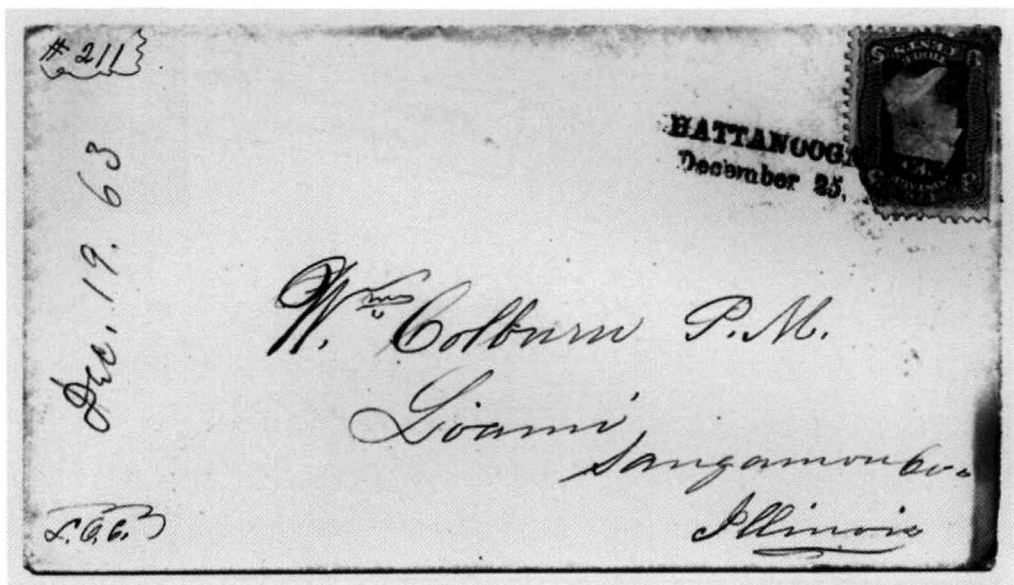 # 211
Dec. 19. 63
HATTANOOGA TEN
December 25,
Wm Colburn P.M.
Loami,
Sangamon Co.
Illinois